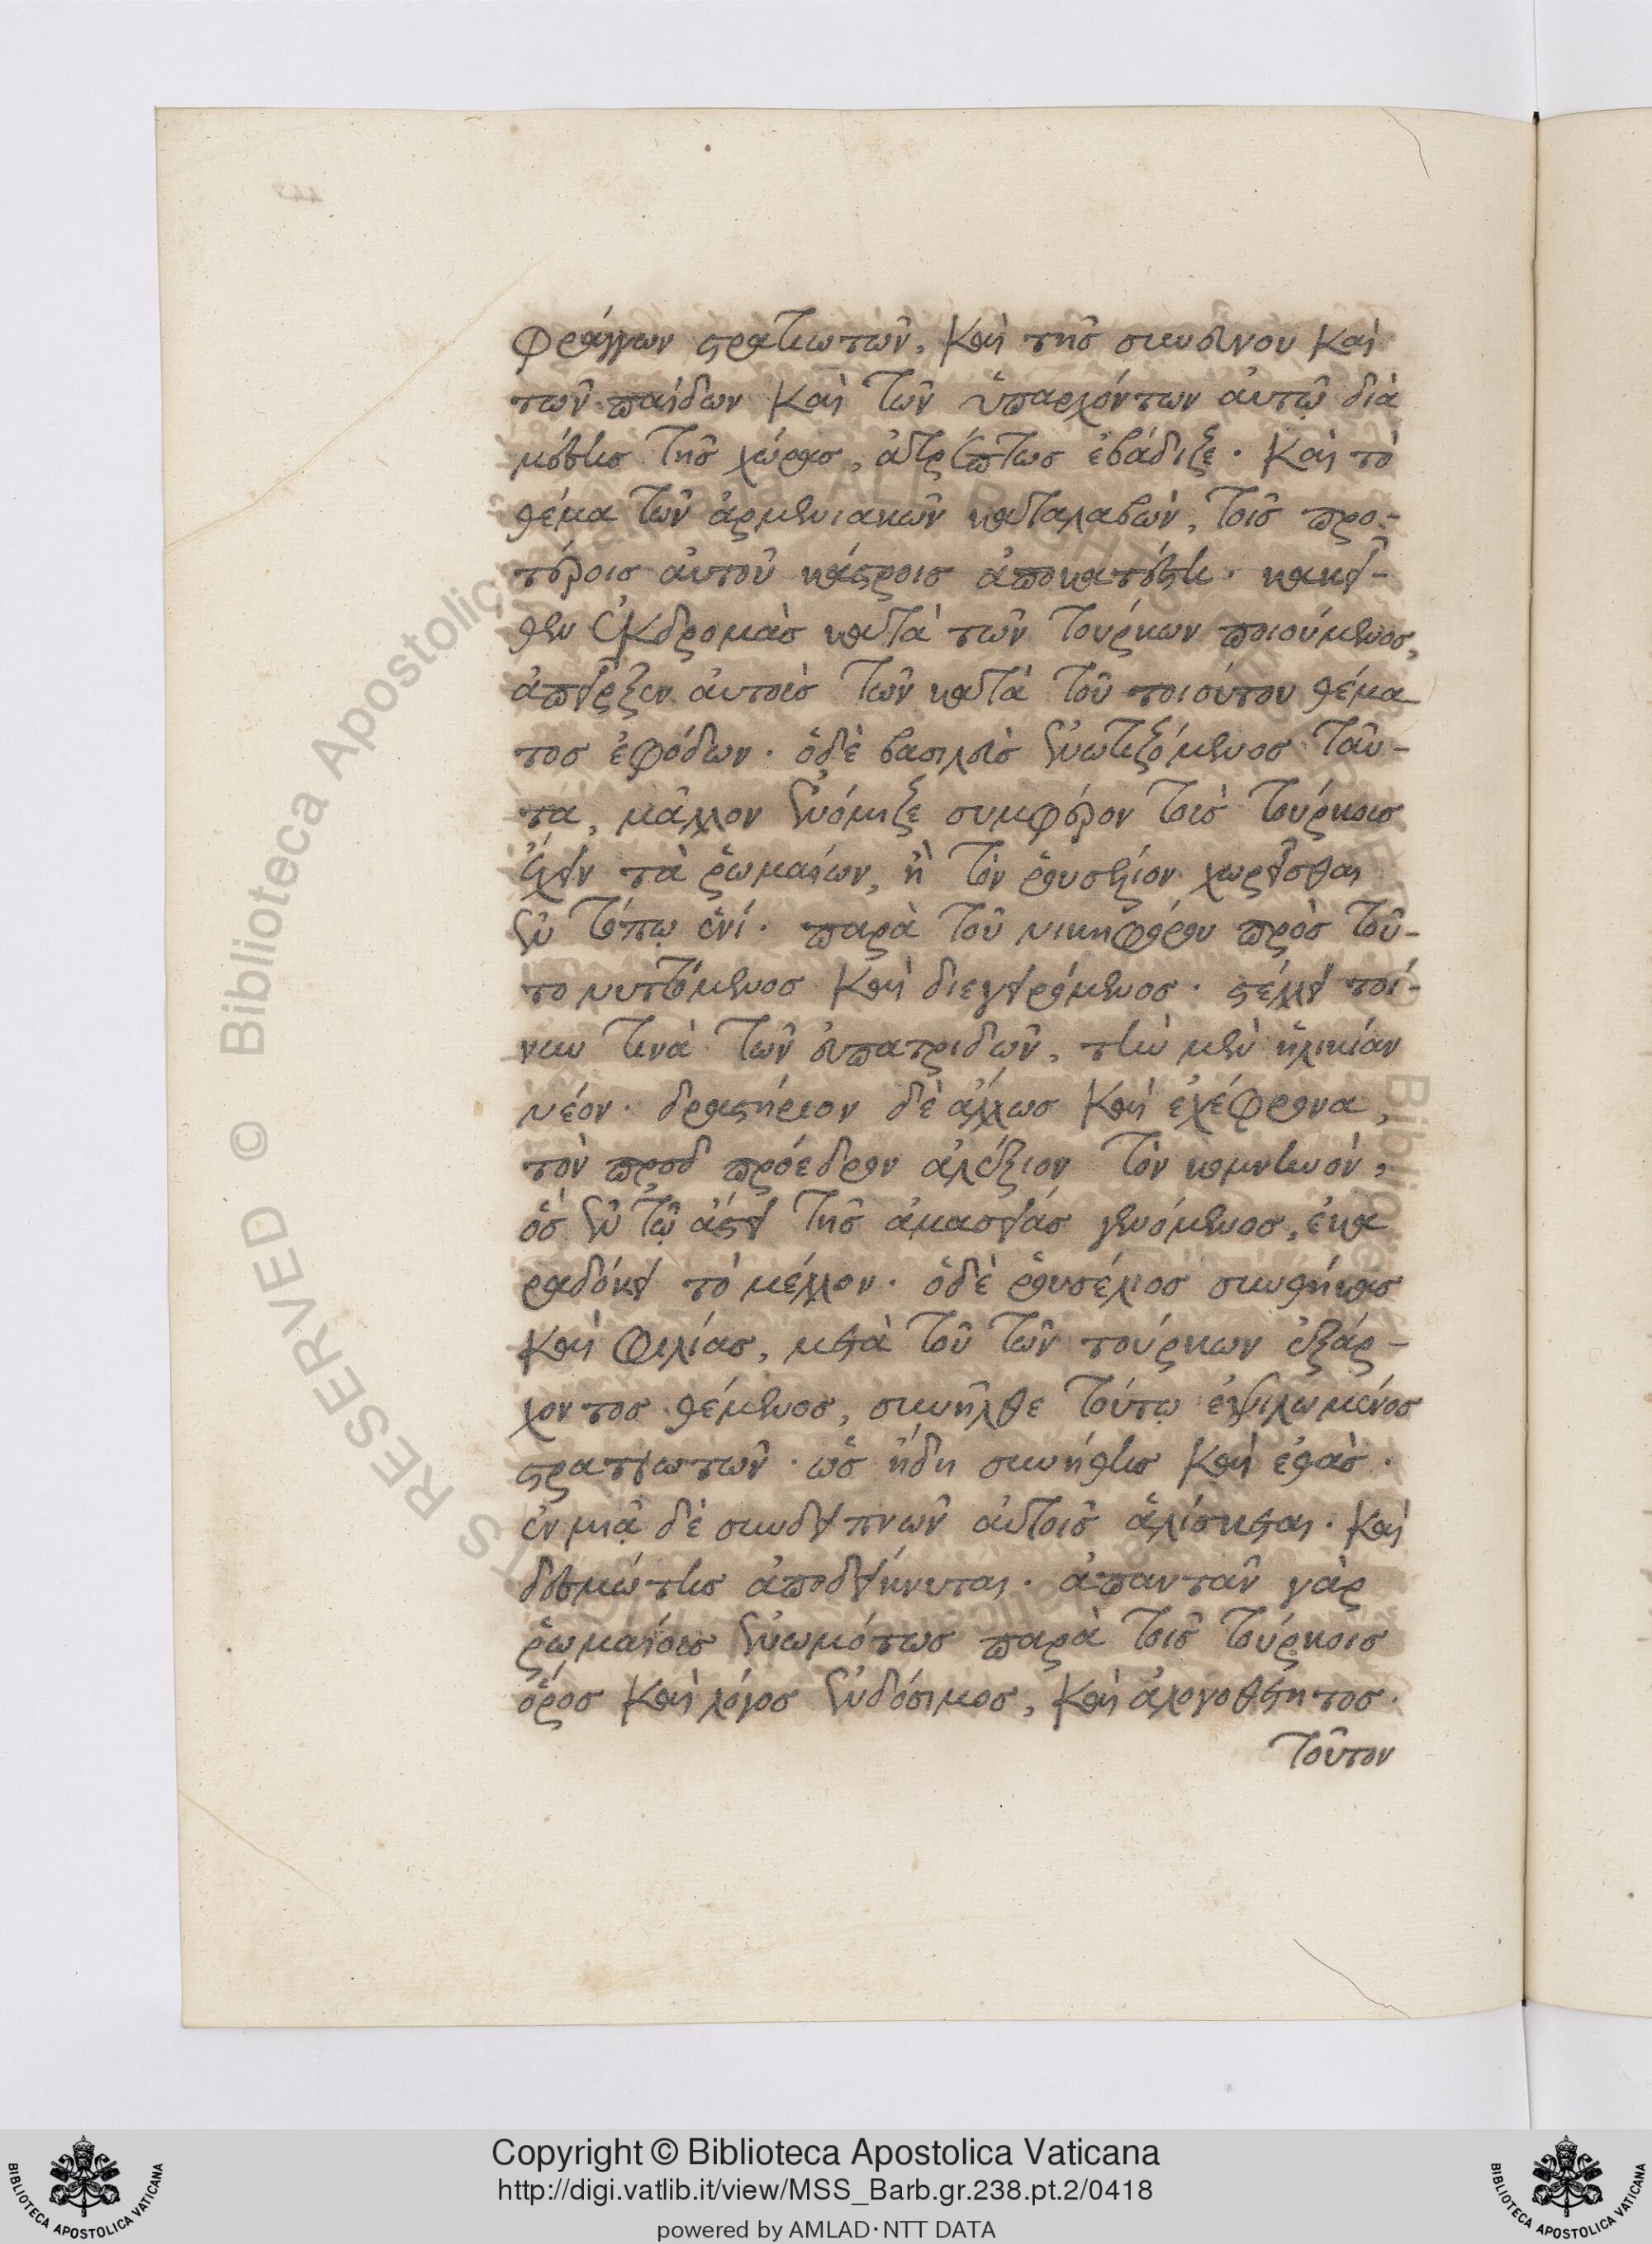 φράγγων στρατιωτῶν, καὶ τῆς συνοίνου καὶ
τῶν παίδων καὶ τῶν ὑπαρχόντων αὐτῶ διὰ
μέσης τῆς χώρας, ἀτρέπτως ἐβάδιζε. καὶ τὸ
θέμα τῶν ἀρμενιακῶν καταλαβὼν, τοῖς προ-
τέροις αὐτοῦ κάστροις ἀποκατέστη. κακεῖ-
θεν ἐκδρομὰς κατὰ τῶν τούρκων ποιούμενος,
ἀπεῖρξεν αὐτοὺς τῶν κατὰ τοῦ τοιούτου θέμα
τος ἐφόδων. ὁδὲ βασιλεὺς ἐνωτιζόμενος ταῦ-
τα, μᾶλλον ἐνόμιζε συμφέρον τοὺς τούρκους
ἔχειν τὰ ῥωμαίων, ἢ τὸν ρουσέλιον χωρεῖσθαι
ἐν τόπω ἑνί. παρὰ τοῦ νικηφόρου πρὸς τοῦ-
το νυττόμενος καὶ διεγειρόμενος. στέλλει τοί-
νυν τινὰ τῶν εὐπατριδῶν, τὴν μὲν ἡλικίαν
νέον. δραστήριον δὲ ἄλλως καὶ ἐχέφρονα,
τὸν πρόεδρον ἀλέξιον τὸν κομνηνὸν,
ὃς ἐν τῶ ἄστει τῆς ἀμασείας γενόμενος, ἐκα
ραδόκει τὸ μέλλον. ὁδὲ ρουσέλιος συνθήκας
καὶ φιλίας, μετὰ τοῦ τῶν τούρκων ἐξάρ-
χοντος θέμενος, συνῆλθε τούτω ἐψιλωμένος
στρατιωτῶν. ὡς ἤδη συνήθης καὶ ἐθὰς.
ἐν μιᾶ δὲ συνδειπνῶν αὐτοῖς ἁλίσκεται. καὶ
δεσμώτης ἀποδείκνυται. ἀπαντᾶν γὰρ
ῥωμαίοις ἐνωμότως παρὰ τοῖς τούρκοις
ὅρος καὶ λόγος ἐνδόσιμος, καὶ ἀλογοθέτητος.
τοῦτον
Copyright © Biblioteca Apostolica Vaticana
http://digi.vatlib.it/view/MSS_Barb.gr.238.pt.2/0418
powered by AMLAD·NTT DATA